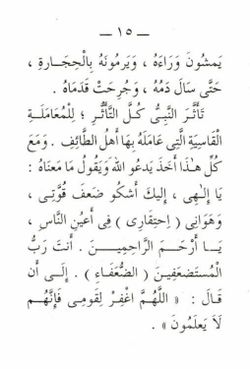 — ١٥ —
يَمشُونَ وَرَاءَهُ ، وَيَرمُونَهُ بِالْحِجَارةِ ،
حَتَّى سَالَ دَمُهُ ، وَجُرِحَتْ قَدَمَاهُ .
تَأَثَّرَ النَّبِيُّ كُلَّ التَّأَثُّرِ ؛ لِلْمُعَامَلَةِ
القَاسِيَةِ الَّتِي عَامَلَهُ بِهَا أَهلُ الطَّائِفِ . وَمَعَ
كُلِّ هٰذَا أَخَذَ يَدعُو الله وَيَقُولُ مَا مَعنَاهُ :
يَا إِلٰهِي ، إِلَيكَ أَشكُو ضَعفَ قُوَّتِي ،
وَهَوَانِي ( اِحتِقَارِي ) فِي أَعيُنِ النَّاسِ ،
يَا أَرْحَمَ الرَّاحِمِينَ . أَنتَ رَبُّ
المُستَضعَفِينَ ( الضُّعَفَاءِ ) . إِلَى أَن
قَالَ : « اللَّهُمَّ اغْفِرْ لِقَومِي فَإِنَّهُم
لَا يَعلَمُونَ » .